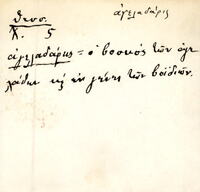 ἀγελαδάρις
Κ. 5
ἀγελαδάρις = ὁ βοσκὸς τῶν ἀγε
λάδων κ̣ ἐν γένει τῶν βοϊδιῶν.